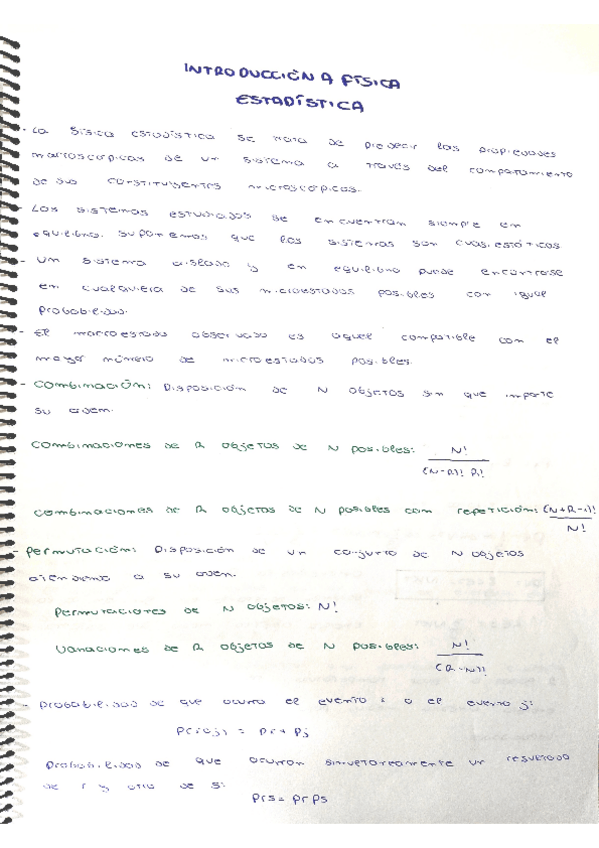 INTRODUCCIÓN A FÍSICA
ESTADÍSTICA
- La física estadística se trata de predecir las propiedades
macroscópicas de un sistema a través del comportamiento
de sus constituyentes microscópicos.
- Los sistemas estudiados se encuentran siempre en
equilibrio. Suponemos que los sistemas son cuasiestáticos
- Un sistema aislado y en equilibrio puede encontrarse
en cualquiera de sus microestados posibles con igual
probabilidad.
- El macroestado observado es aquel compatible con el
mayor número de microestados posibles.
- COMBINACIÓN: Disposición de N objetos sin que importe
su orden.
Combinaciones de R objetos de N posibles: N! / (N-R)! R!
Combinaciones de R objetos de N posibles con repetición: (N+R-1)! / N!
- Permutación: Disposición de un conjunto de N objetos
atendiendo a su orden.
Permutaciones de N objetos: N!
Variaciones de R objetos de N posibles: N! / (R-N)!
- Probabilidad de que ocurra el evento i o el evento j:
Pr(i o j) = Pi + Pj
Probabilidad de que ocurran simultáneamente un resultado
de r y otro de s:
Prs = Pr Ps